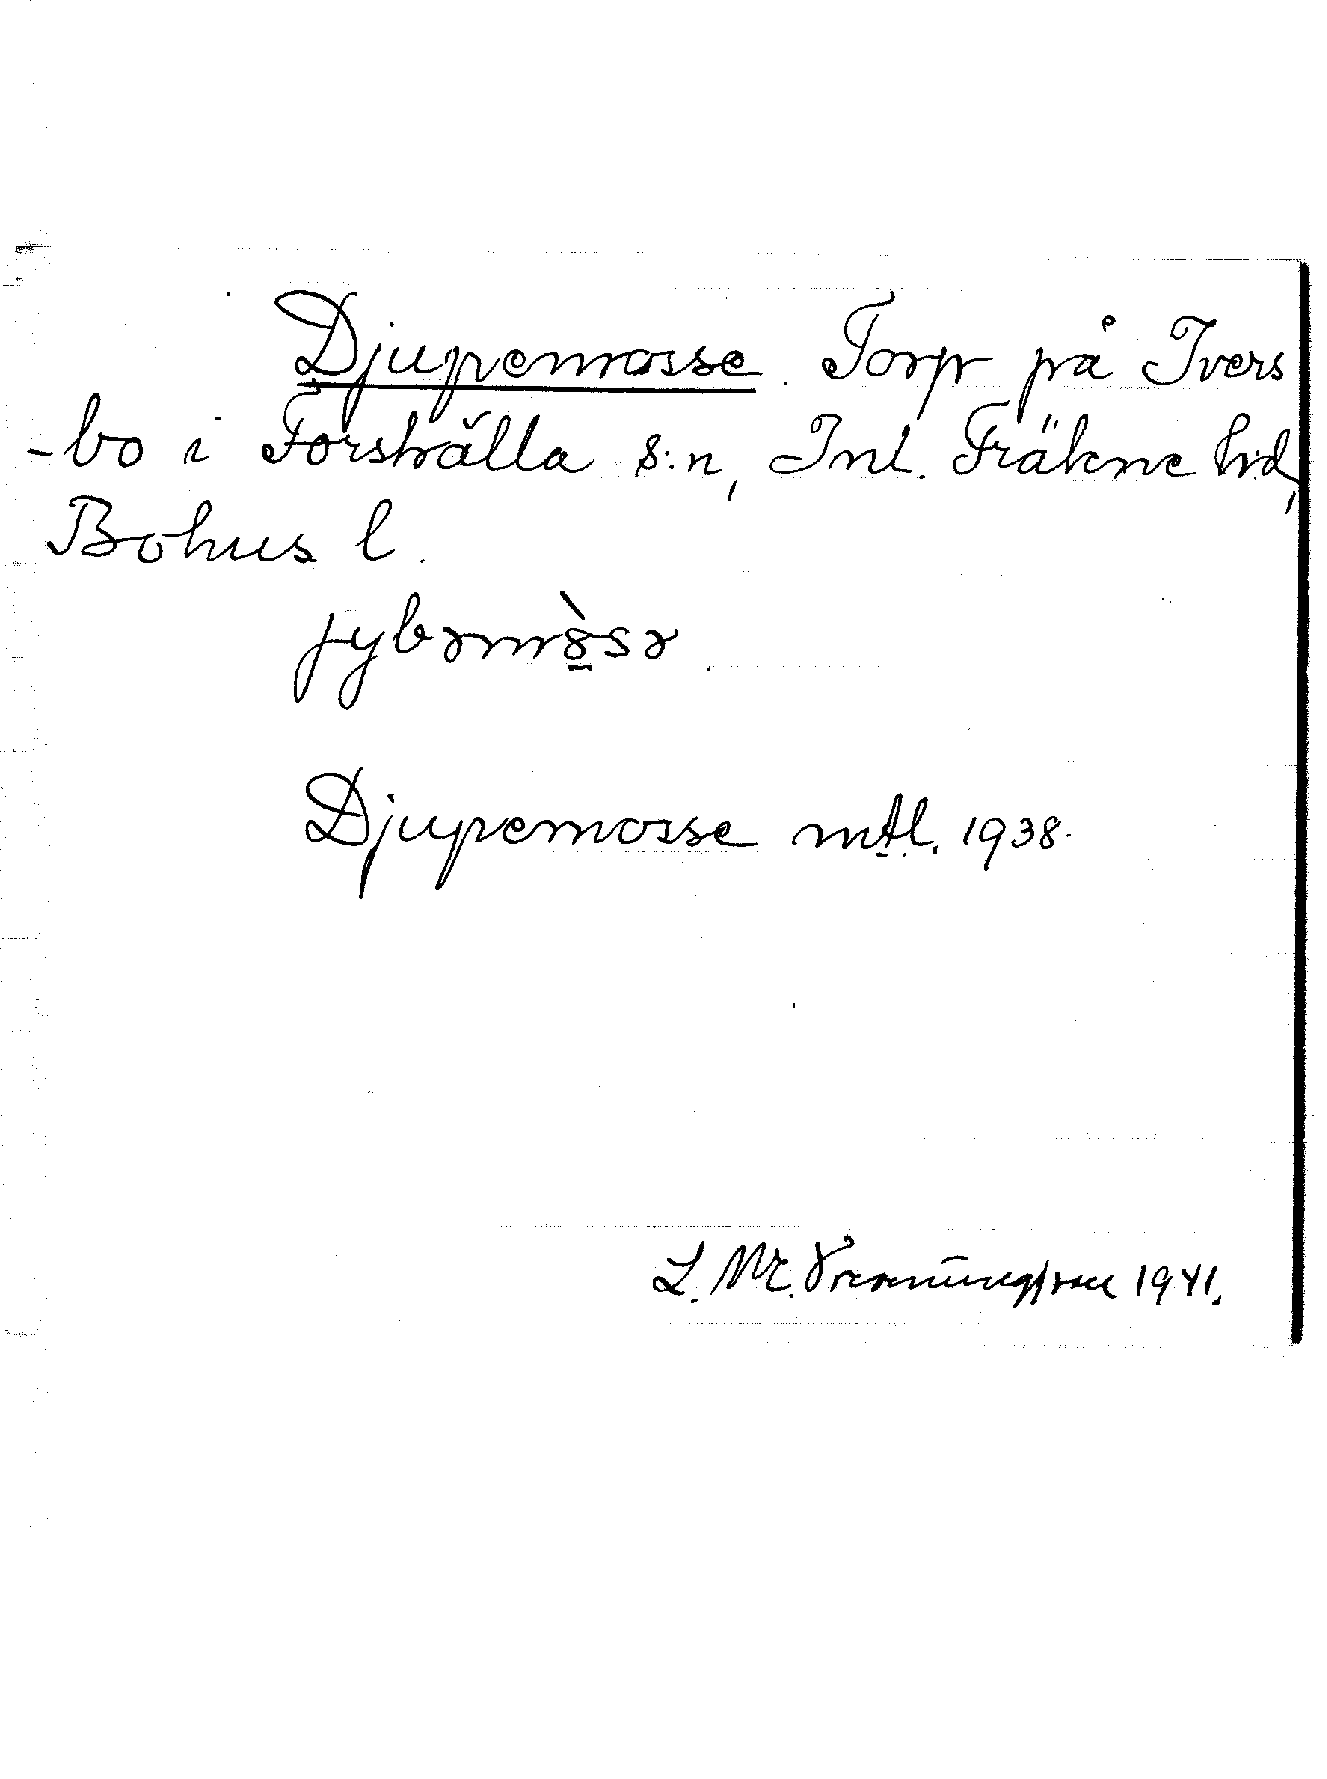 Djupemosse. Torp på Ivers
-bo i Forshälla s:n, Inl. Fräkne hd,
Bohus l.
jybəmòsə.
Djupemosse mtl. 1938.
L. M. 1941.